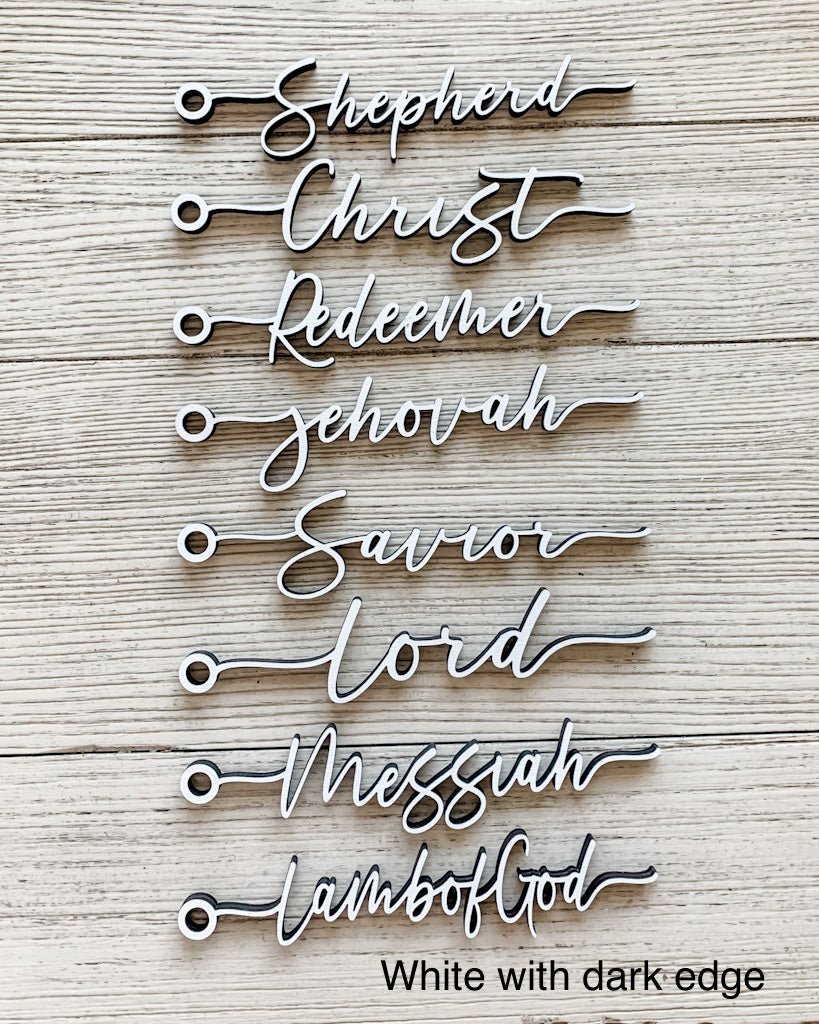 Shepherd
Christ
Redeemer
Jehovah
Savior
Lord
Messiah
LambofGod
White with dark edge